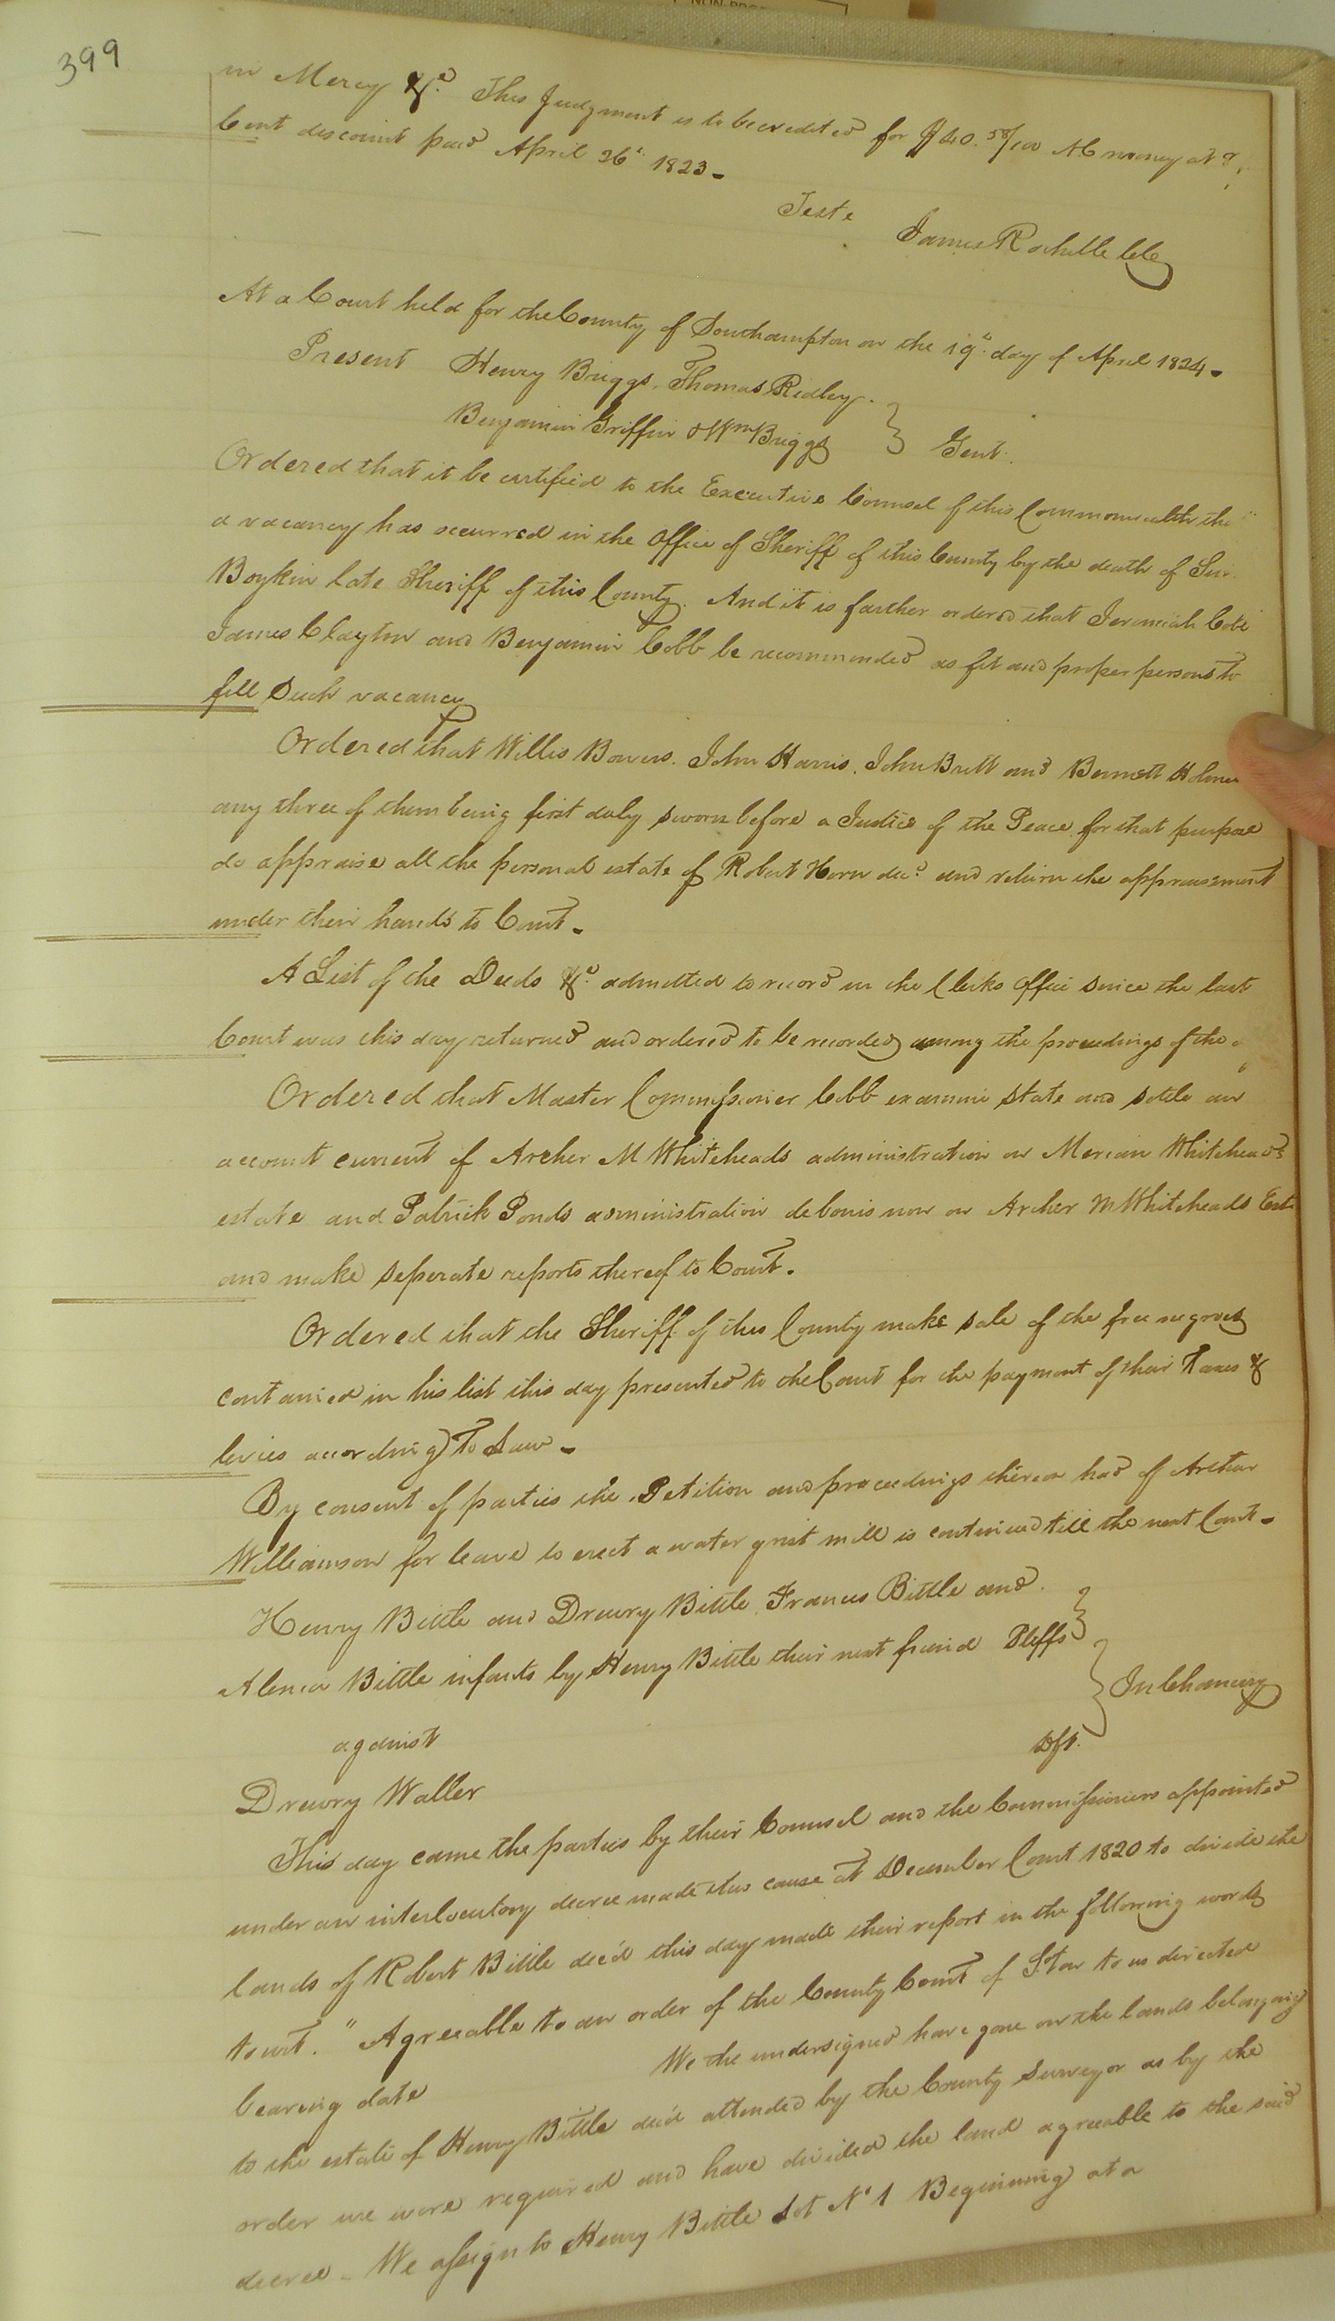 399
in Mercy &c. This Judgment is to be credited for $40. 58/100 NC money at 8
Cent discount paid April 26th 1823.
Teste
James Rochelle Clk
At a Court held for the County of Southampton on the 19th day of April 1824.
Present Henry Briggs, Thomas Ridley.
Benjamin Griffin & Wm Briggs } Gent.
Ordered that it be certified to the Executive Counsel of this Commonwealth tha
a vacancy has occurred in the Office of Sheriff of this County by the death of
Boykin late Sheriff of this County. And it is farther ordered that Jeremiah Cobb
James Clayton and Benjamin Cobb be recommended as fit and proper persons to
fill Such vacancy
Ordered that Willis Bowers. John Harris, John Britt and Bennett Holmes
any three of them being first duly sworn before a Justice of the Peace for that purpose
do appraise all the personal estate of Robert Horn decd. and return the appraisement
under their hands to Court.
A List of the Deeds &c. admitted to record in the Clerks Office since the last
Court was this day returned and ordered to be recorded among the proceedings of the
Ordered that Master Commissioner Cobb examine state and settle an
account current of Archer M Whiteheads administration on Merian Whiteheads
estate and Patrick Ponds administration debonis non on Archer M Whiteheads Est.
and make seperate reports thereof to Court.
Ordered that the Sheriff of this County make sale of the free negroes
contained in his list this day presented to the Court for the payment of their Taxes &
levies according To Law.
By consent of parties the Petition and proceedings thereon had of Arthur
Williamson for leave to erect a water grist mill is continued till the next Court.
Henry Bittle and Drewry Bittle, Frances Bittle and
Bittle infants by Henry Bittle their next friend Pltffs
} In Chancery
against
Dft.
Drewry Waller
This day came the parties by their Counsel and the Commissioners appointed
under an interlocutory decree made this cause at December Court 1820 to divide the
lands of Robert Bittle dec'd this day made their report in the following words
towit. "Agreeable to an order of the County Court of S.ton to us directed
bearing date We the undersigned have gone on the lands belonging
to the estate of Henry Bittle dec'd attended by the County Surveyor as by the
order we were required and have divided the land agreeable to the said
decree - We assign to Henry Bittle Lot No 1 Beginning at a